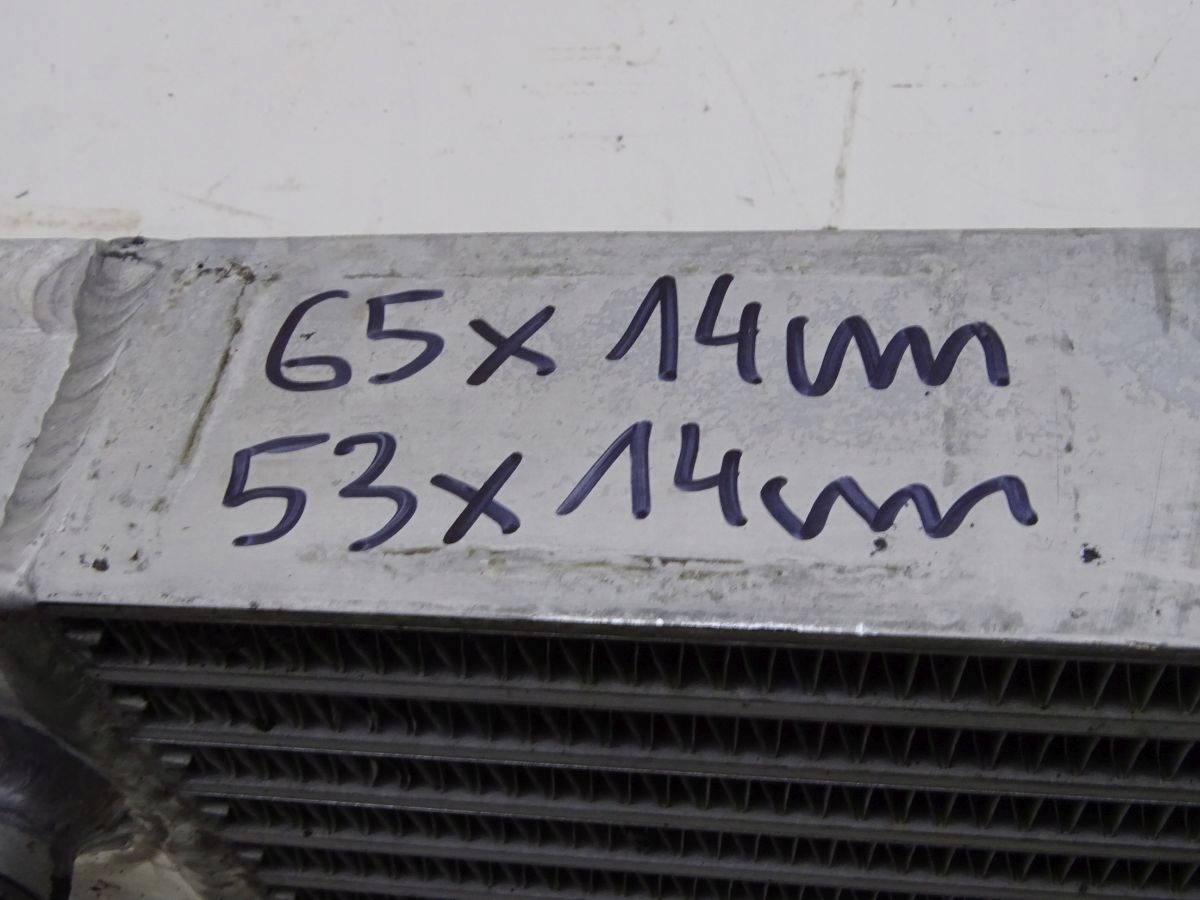 65x14cm
53x14cm